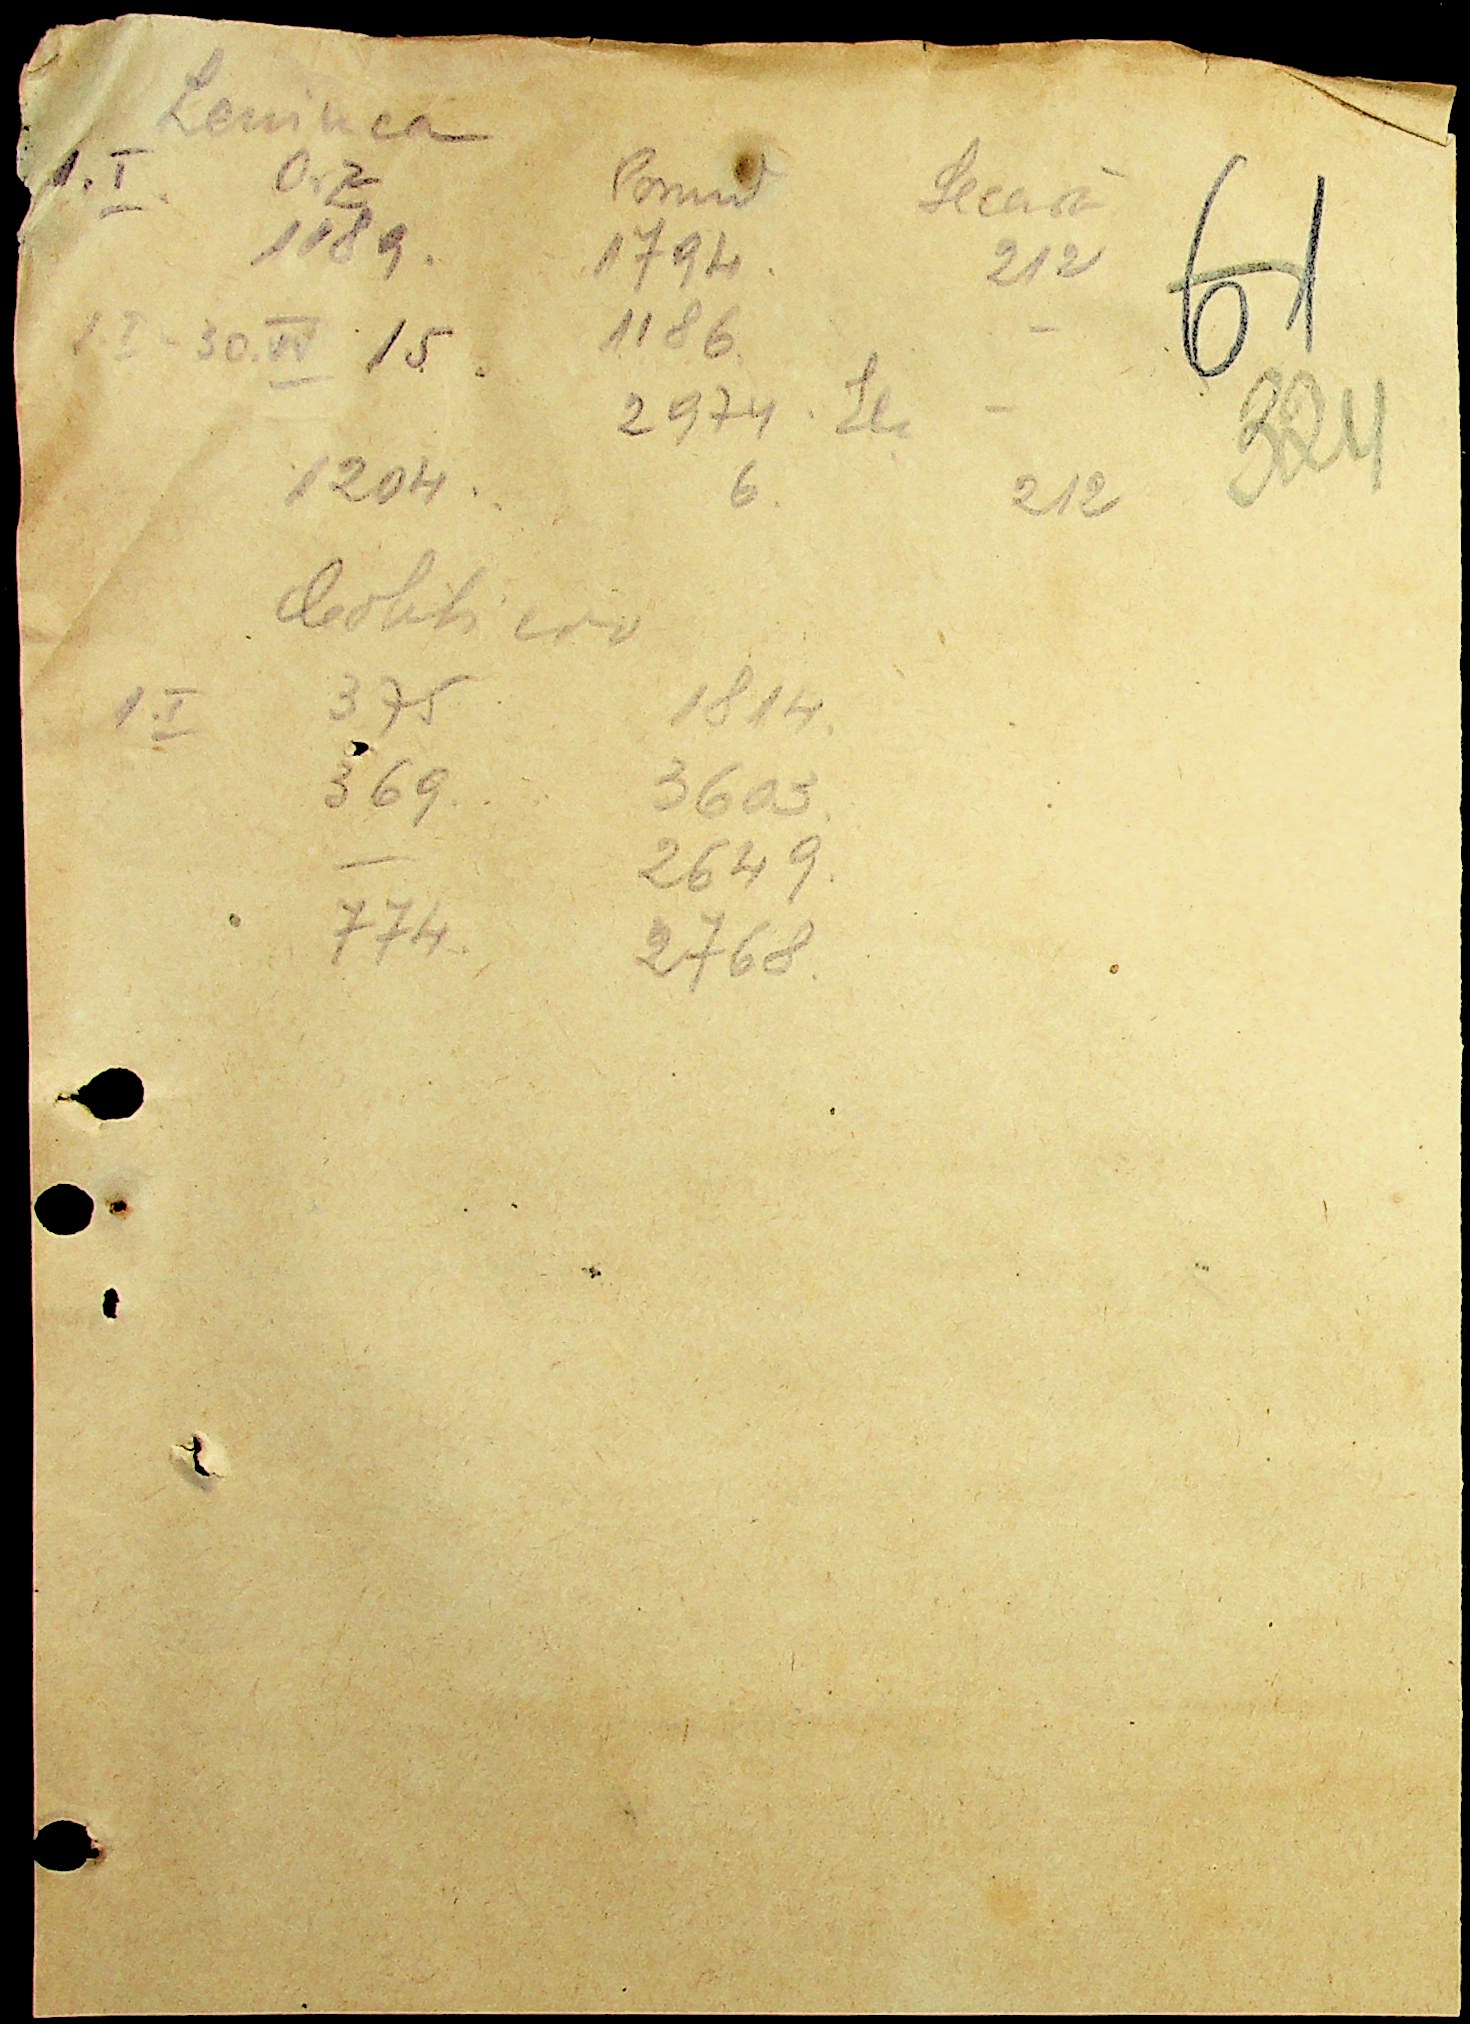 Leninca
1.I. Orz Porumb Secară
1189. 1794. 212
61
1.I - 30.VI 15. 1186. -
2974. -
324
1204. 6. 212
1.I 375 1814.
369. 3603.
— 2649.
774. 2768.